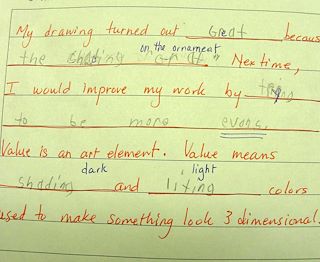 My drawing turned out Great becaus
on the ornament
the shading Next time,
I would improve my work by
to be more evons.
Value is an art element. Value means
dark light
shading and liting colors
used to make something look 3 dimensional.